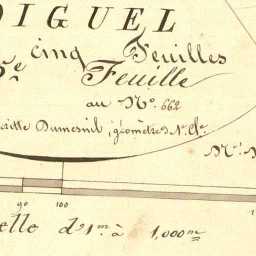 DIGUEL
cinq Feuilles
5.e Feuille
au N.o 662
Dumesnil, géomètre
90 100
elle d'1.m à 1,000.m